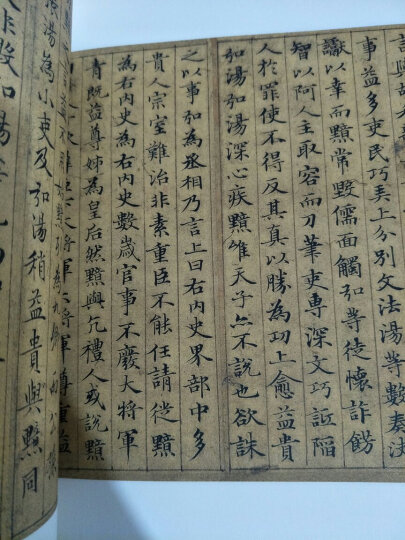 事益多吏民巧弄上分別文法湯等數奏決
讞以幸而黯常毀儒面觸弘等徒懷詐飾
智以阿人主取容而刀筆吏專深文巧詆陷
人於罪使不得反其真以勝為功上愈益貴
弘湯弘湯深心疾黯唯天子亦不說也欲誅
之以事弘為丞相乃言上曰右內史界部中多
貴人宗室難治非素重臣不能任請徙黯
為右內史為右內史數歲官事不廢大將軍
青既益尊姊為皇后然黯與亢禮人或說黯
大將軍大將軍尊重益
湯為小吏及弘湯稍益貴與黯同
非毀弘湯等